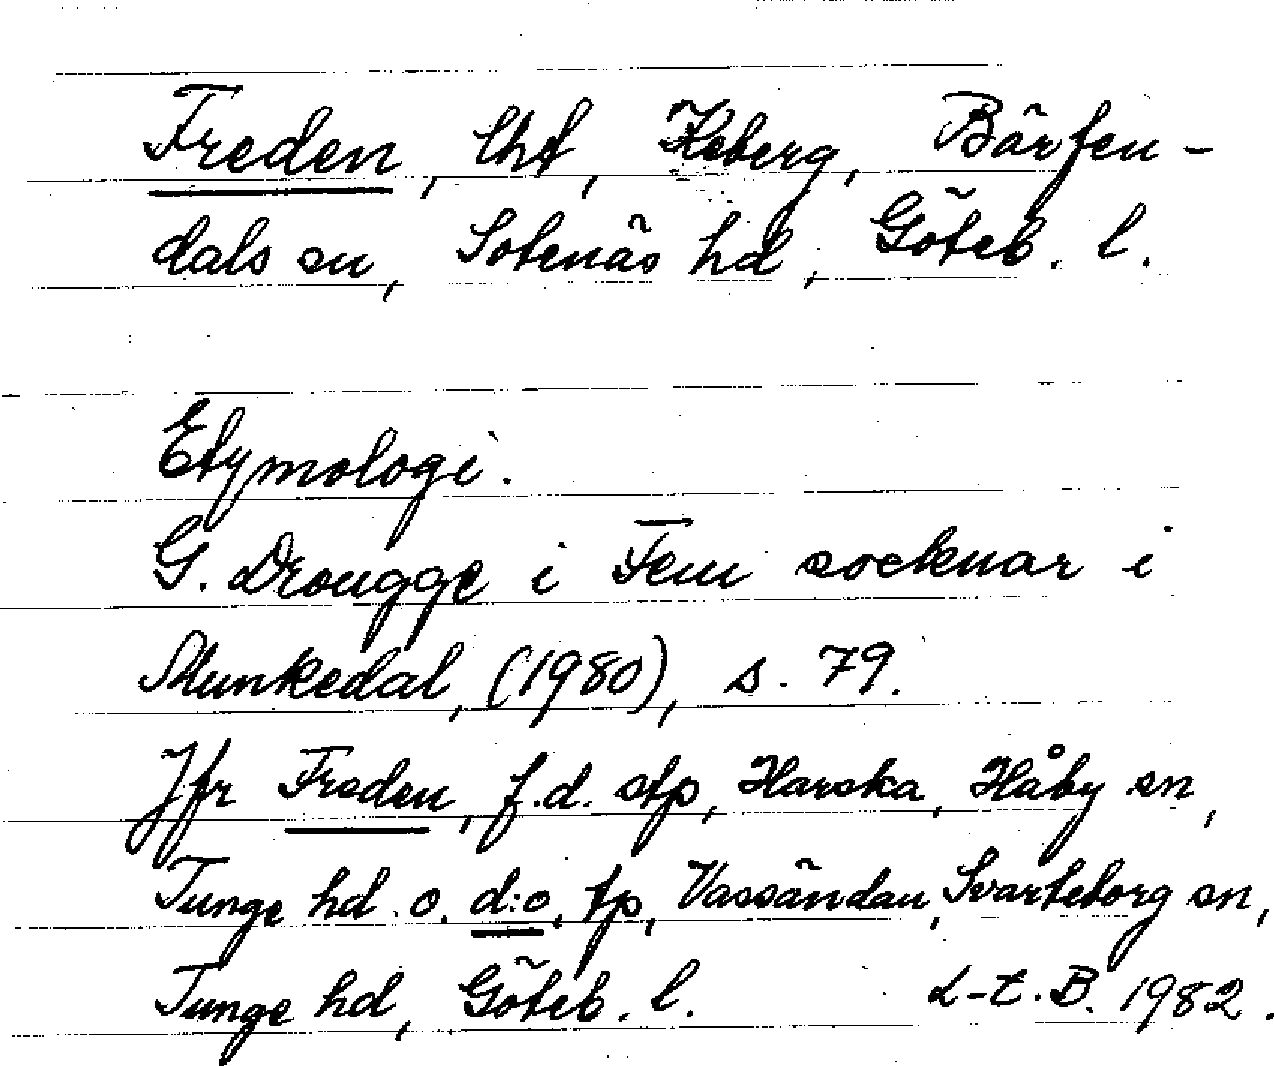 Freden, lht, Heberg, Bärfen-
dals sn, Sotenäs hd, Göteb. l.
Etymologi.
G. Drougge i Fem socknar i
Munkedal, (1980), s. 79.
Jfr Freden, f.d. stp, Harska, Håby sn,
Tunge hd. o. d:o, tp, Vassändan, Svarteborg sn,
Tunge hd, Göteb. l. L-E.B. 1982.